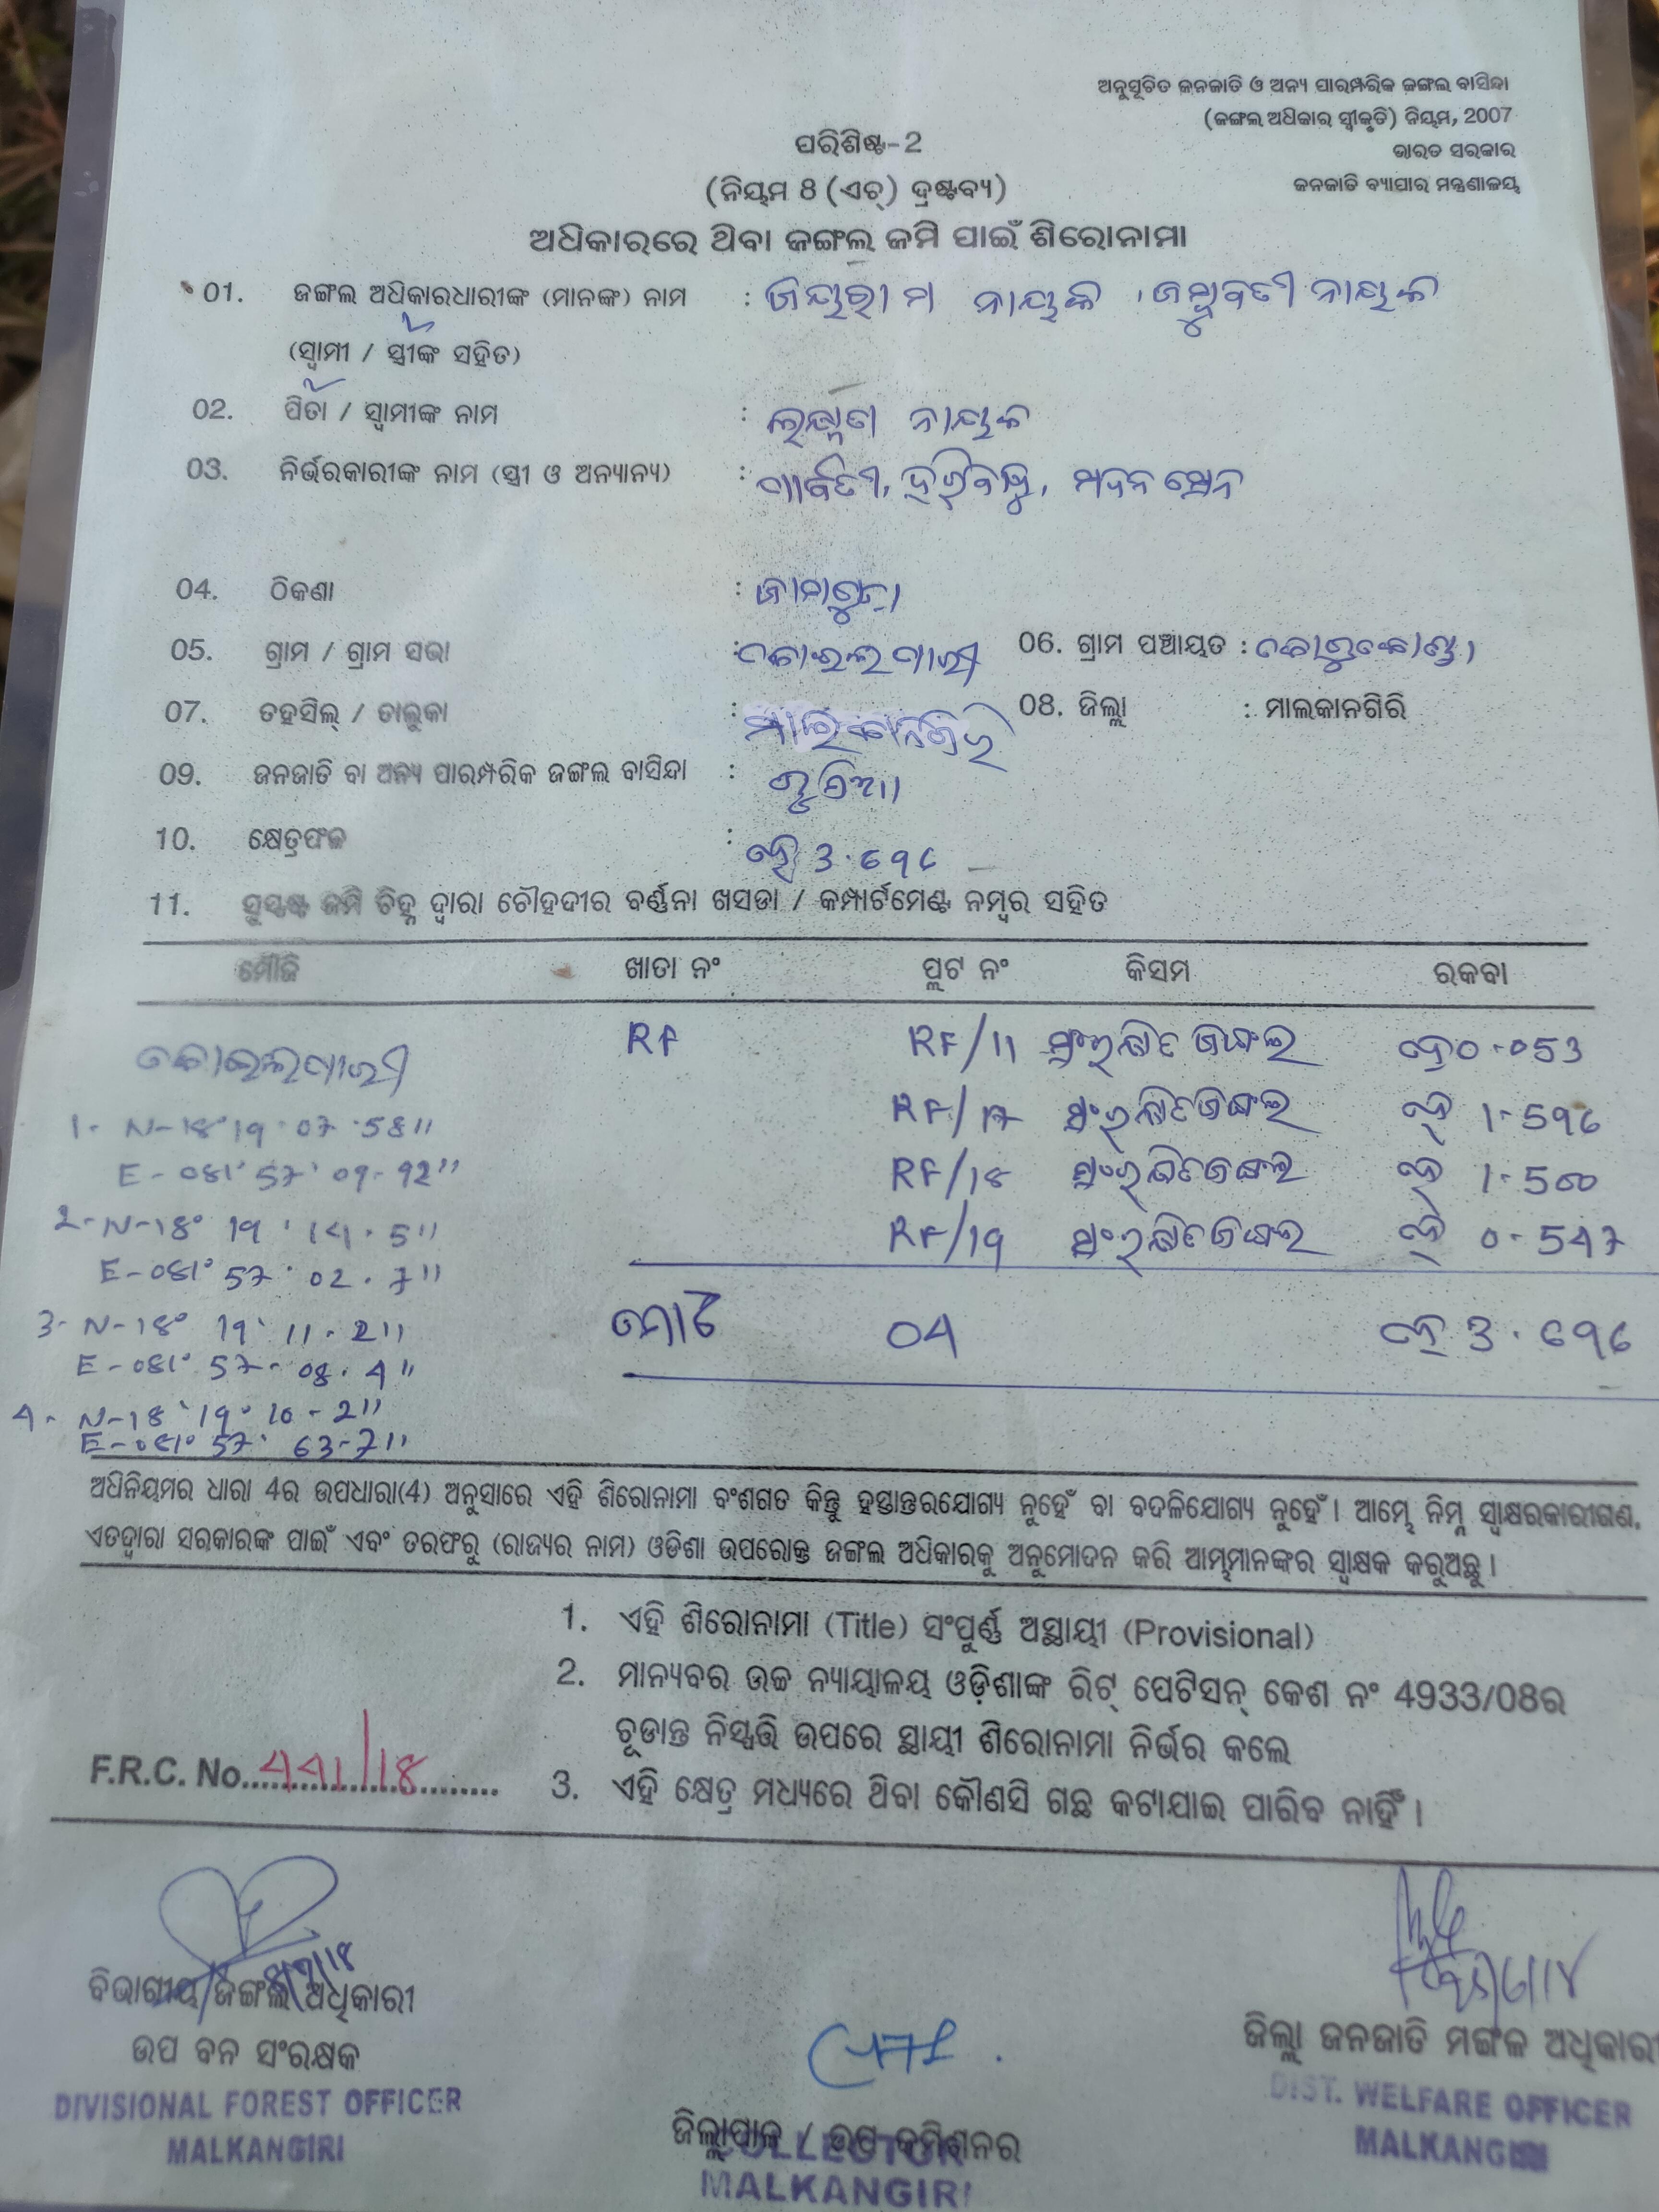 ଅନୁସୂଚିତ ଜନଜାତି ଓ ଅନ୍ୟ ପାରମ୍ପରିକ ଜଙ୍ଗଲ ବାସିନ୍ଦା
(ଜଙ୍ଗଲ ଅଧିକାର ସ୍ୱୀକୃତି) ନିୟମ, 2007
ଭାରତ ସରକାର
ଜନଜାତି ବ୍ୟାପାର ମନ୍ତ୍ରଣାଳୟ
ପରିଶିଷ୍ଟ-2
(ନିୟମ 8 (ଏଚ୍) ଦ୍ରଷ୍ଟବ୍ୟ)
ଅଧିକାରରେ ଥିବା ଜଙ୍ଗଲ ଜମି ପାଇଁ ଶିରୋନାମା
01. ଜଙ୍ଗଲ ଅଧିକାରଧାରୀଙ୍କ (ମାନଙ୍କ) ନାମ : ନାୟକ , ନାୟକ
(ସ୍ୱାମୀ / ସ୍ତ୍ରୀଙ୍କ ସହିତ)
02. ପିତା / ସ୍ୱାମୀଙ୍କ ନାମ : ଲକ୍ଷ୍ମଣ ନାୟକ
03. ନିର୍ଭରକାରୀଙ୍କ ନାମ (ସ୍ତ୍ରୀ ଓ ଅନ୍ୟାନ୍ୟ) : ପାର୍ବତୀ,
04. ଠିକଣା :
05. ଗ୍ରାମ / ଗ୍ରାମ ସଭା : 06. ଗ୍ରାମ ପଞ୍ଚାୟତ :
07. ତହସିଲ୍ / ତାଲୁକା : ମାଲକାନଗିରି 08. ଜିଲ୍ଲା : ମାଲକାନଗିରି
09. ଜନଜାତି ବା ଅନ୍ୟ ପାରମ୍ପରିକ ଜଙ୍ଗଲ ବାସିନ୍ଦା : ଭୂମିଆ
10. କ୍ଷେତ୍ରଫଳ : ହେ 3.୬୨୬
11. ସୁସ୍ପଷ୍ଟ ଜମି ଚିହ୍ନ ଦ୍ୱାରା ଚୌହଦୀର ବର୍ଣ୍ଣନା ଖସଡା / କମ୍ପାର୍ଟମେଣ୍ଟ ନମ୍ବର ସହିତ
ମୌଜି ଖାତା ନଂ ପ୍ଲଟ ନଂ କିସମ ରକବା
RF RF/11 ସଂରକ୍ଷିତ ଜଙ୍ଗଲ ହେ 0.053
1- N-18°19 07.58"
RF/17 ସଂରକ୍ଷିତ ଜଙ୍ଗଲ ହେ 1.596
E-081° 57' 09.92"
RF/18 ସଂରକ୍ଷିତ ଜଙ୍ଗଲ ହେ 1.500
2- N-18° 19' 14.5"
RF/19 ସଂରକ୍ଷିତ ଜଙ୍ଗଲ ହେ 0.547
E-081° 57' 02.7"
3- N-18° 19' 11.2" ମୋଟ 04 ହେ 3.୬୨୬
E-081° 57' 08.4"
4- N-18° 19° 10-2"
E-081° 57' 63-7"
ଅଧିନିୟମର ଧାରା 4ର ଉପଧାରା(4) ଅନୁସାରେ ଏହି ଶିରୋନାମା ବଂଶଗତ କିନ୍ତୁ ହସ୍ତାନ୍ତରଯୋଗ୍ୟ ନୁହେଁ ବା ବଦଳିଯୋଗ୍ୟ ନୁହେଁ। ଆମ୍ଭେ ନିମ୍ନ ସ୍ୱାକ୍ଷରକାରୀଗଣ,
ଏତଦ୍ୱାରା ସରକାରଙ୍କ ପାଇଁ ଏବଂ ତରଫରୁ (ରାଜ୍ୟର ନାମ) ଓଡିଶା ଉପରୋକ୍ତ ଜଙ୍ଗଲ ଅଧିକାରକୁ ଅନୁମୋଦନ କରି ଆମ୍ଭମାନଙ୍କର ସ୍ୱାକ୍ଷକ କରୁଅଛୁ।
1. ଏହି ଶିରୋନାମା (Title) ସଂପୁର୍ଣ୍ଣ ଅସ୍ଥାୟୀ (Provisional)
2. ମାନ୍ୟବର ଉଚ୍ଚ ନ୍ୟାୟାଳୟ ଓଡ଼ିଶାଙ୍କ ରିଟ୍ ପେଟିସନ୍ କେଶ ନଂ 4933/08ର
ଚୂଡାନ୍ତ ନିସ୍ପତ୍ତି ଉପରେ ସ୍ଥାୟୀ ଶିରୋନାମା ନିର୍ଭର କଲେ
F.R.C. No. 441/18
3. ଏହି କ୍ଷେତ୍ର ମଧ୍ୟରେ ଥିବା କୌଣସି ଗଛ କଟାଯାଇ ପାରିବ ନାହିଁ।
ବିଭାଗୀୟ ଜଙ୍ଗଲ ଅଧିକାରୀ
ଉପ ବନ ସଂରକ୍ଷକ
DIVISIONAL FOREST OFFICER
MALKANGIRI
ଜିଲ୍ଲାପାଳ / ଉପ କମିଶନର
COLLECTOR
MALKANGIRI
ଜିଲ୍ଲା ଜନଜାତି ମଙ୍ଗଳ ଅଧିକାରୀ
DIST. WELFARE OFFICER
MALKANGIRI